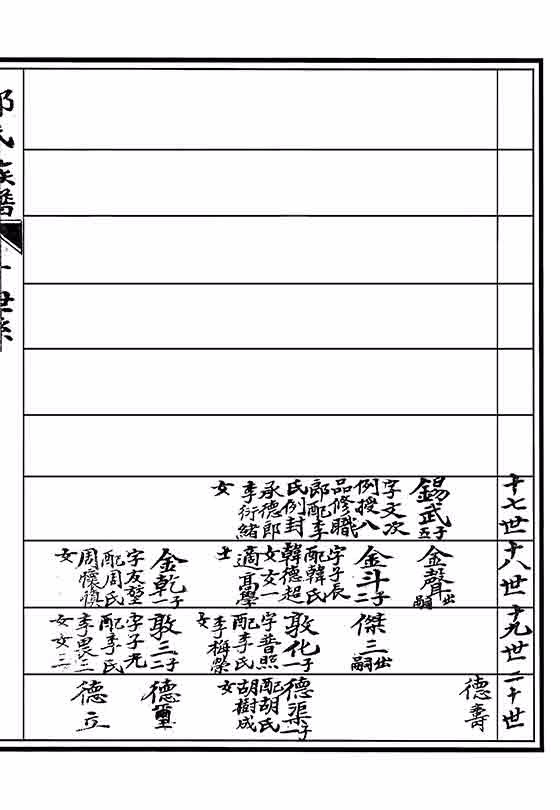 十七世
錫武 五子
字文次
例授八
品修職
郎配李
氏例封
承德郎
李衍緒
女
十八世
金聲 出嗣
金斗 二子
字子長
配韓氏
韓德超
女女一
適高學
士
金乾 一子
字友堃
配周氏
周懷慎
女
十九世
傑三 出嗣
敦化 一子
字普照
配李氏
李梅榮
女
敦三 二子
字子光
配李氏
李畏三
女女三
二十世
德壽
德渠 一子
配胡氏
胡樹成
女
德
德立
氏族譜
十世系